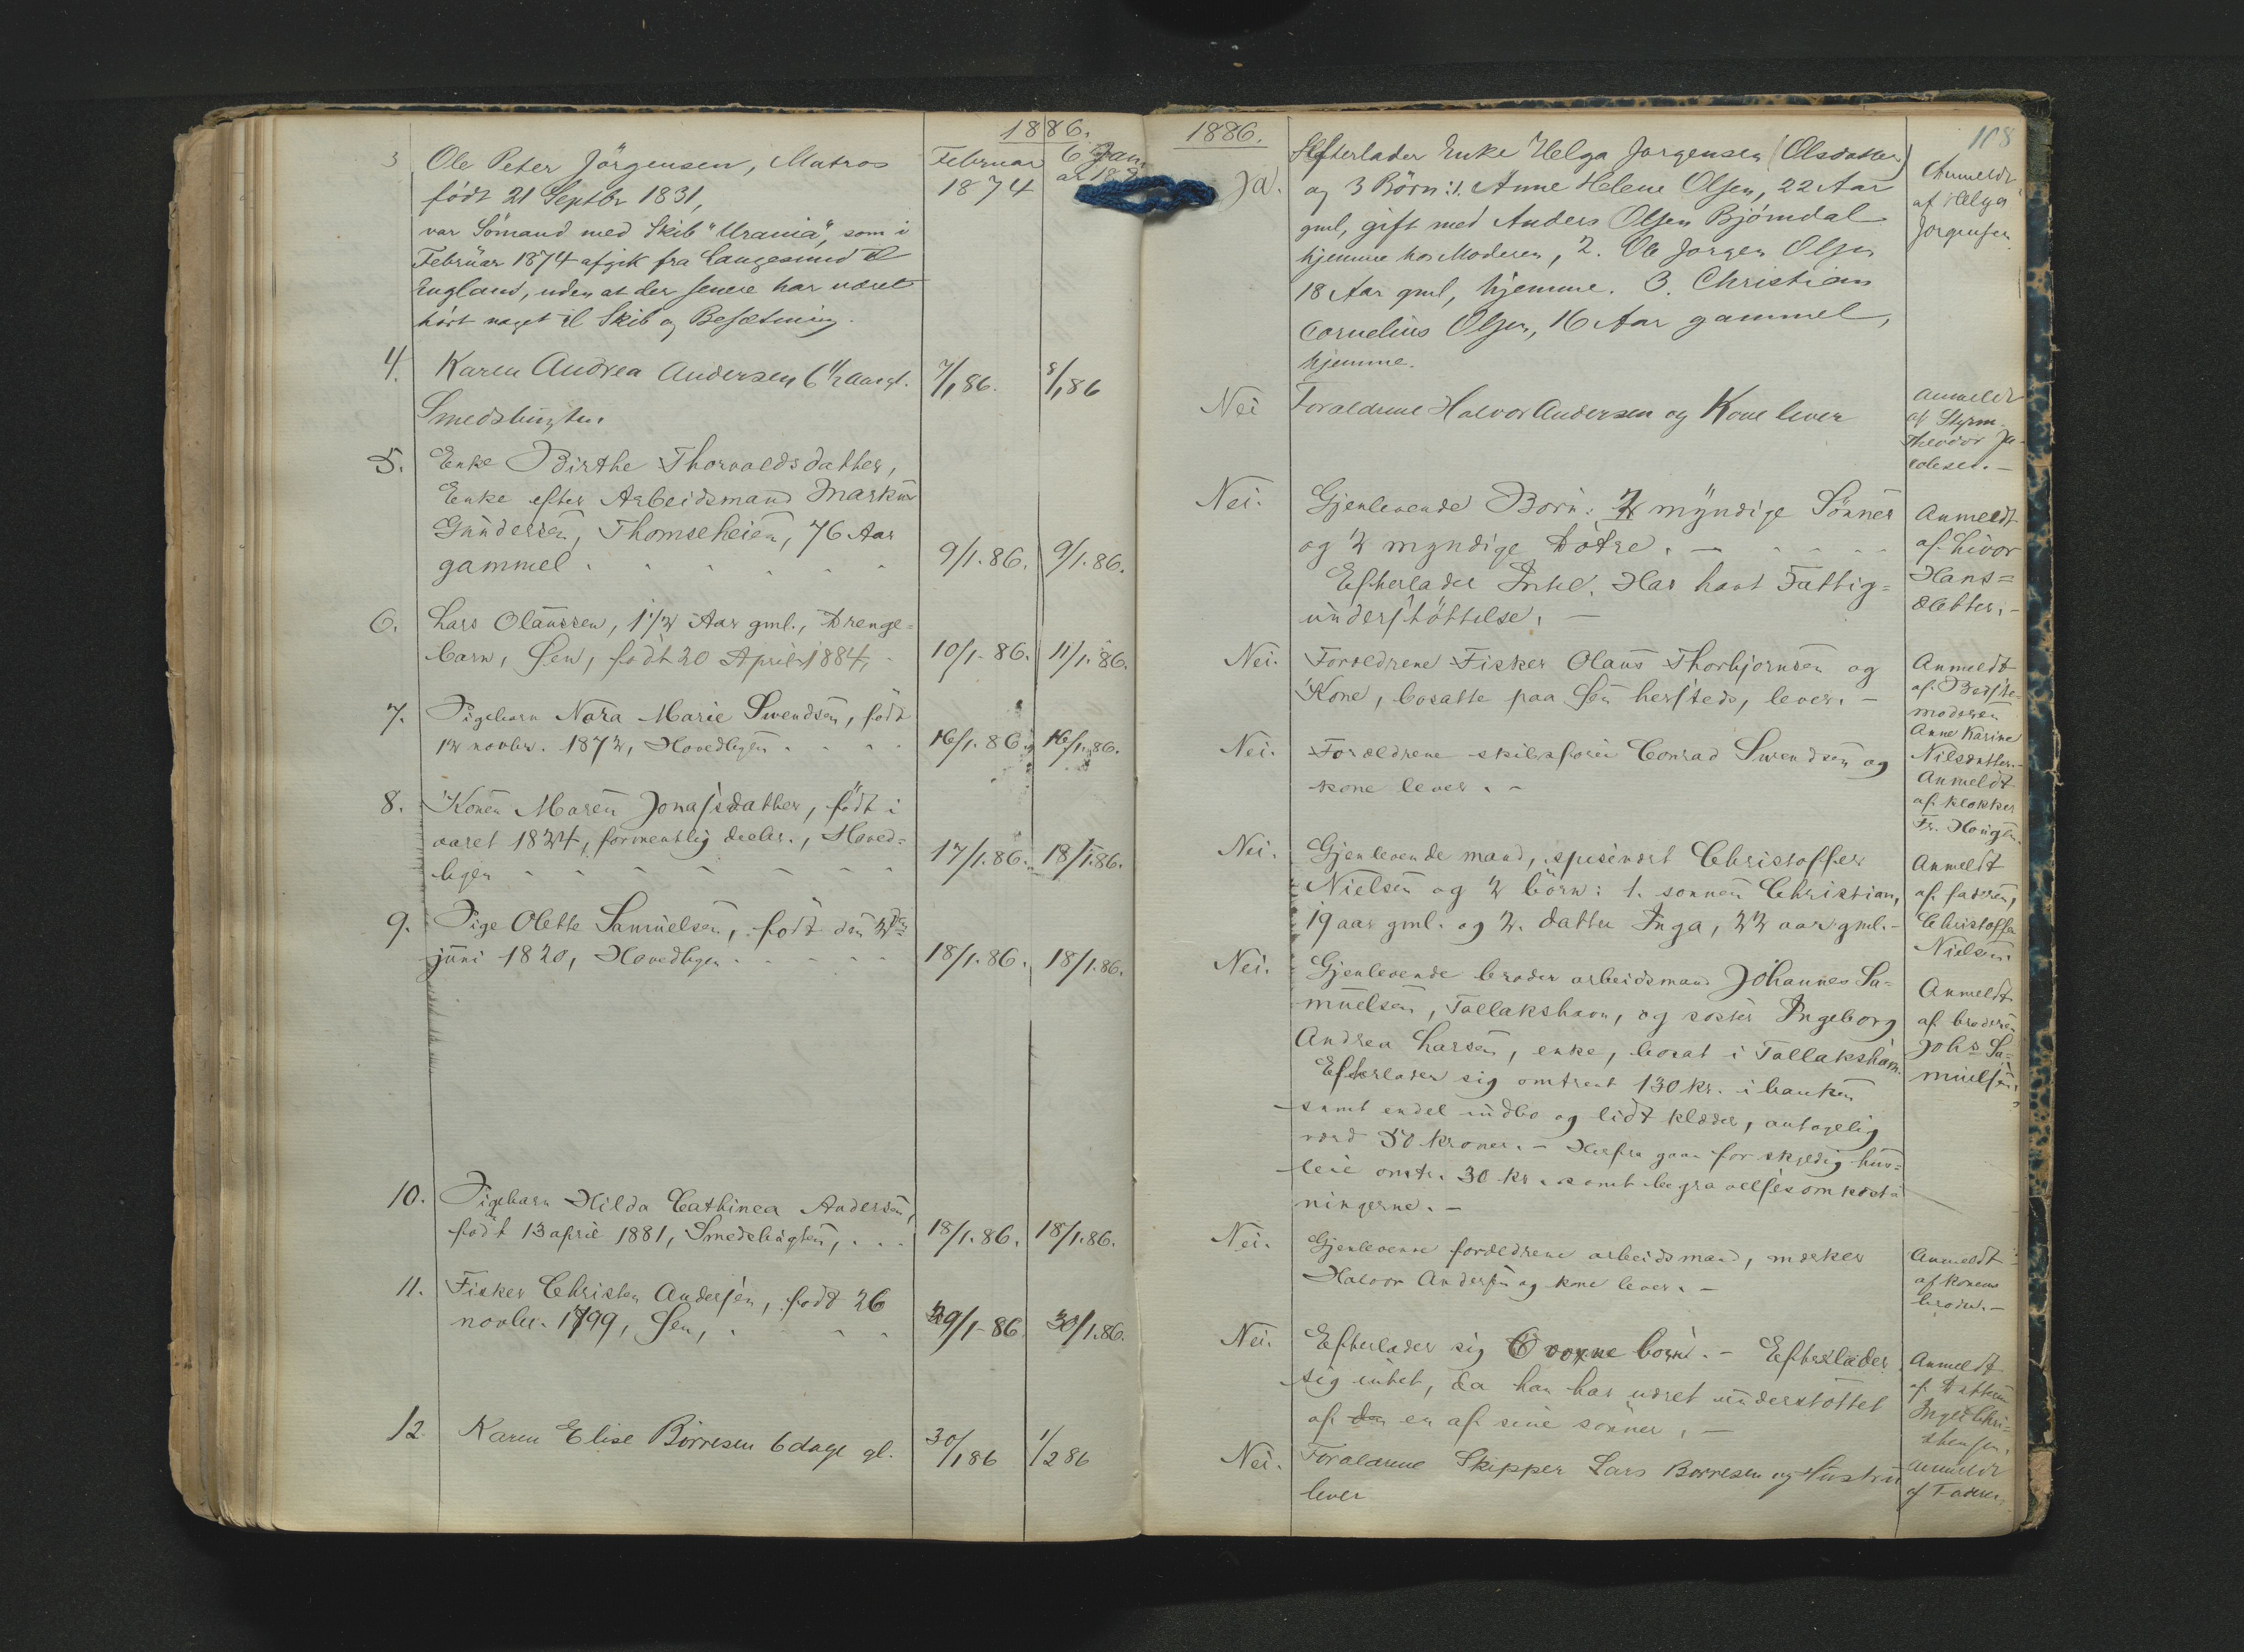 1886.
3 Ole Peter Jörgensen, Matros
födt 21 Septbr 1831,
var Sömand med Skib "Urania", som i
Februar 1874 afgik fra Langesund til
England, uden at der senere har været
hört noget til Skib og Besætning.
Februar
1874
6 Jan.
4. Karen Andrea Andersen 6 1/2 Aar gl.
Smedsbugten
7/1 86. 8/1 86
5. Enke Birthe Thorvaldsdatter,
Enke efter Arbeidsmand Markus
Gundersen, Thomseheien, 76 Aar
gammel . . . . . 9/1. 86. 9/1. 86.
6. Lars Olaussen, 1 1/2 Aar gml., Drenge=
barn, Øen, født 20 April 1884, 10/1. 86. 11/1. 86.
7. Pigebarn Nora Marie Swendsen, født
12 novbr. 1872, Hovedbyen . . . 16/1. 86. 16/1. 86.
8. Konen Maren Jonasdatter, født i
aaret 1824, formentlig decbr., Hoved=
byen 17/1. 86. 18/1. 86.
9. Pige Olette Samuelsen, født den 2den
juni 1820, Hovedbyen . . . . 18/1. 86. 18/1. 86.
10. Pigebarn Hilda Cathinca Andersen,
født 13 april 1881, Smedsbugten, . . . 18/1. 86. 18/1. 86.
11. Fisker Christen Andersen, født 26
novbr. 1799, Øen, . . . 29/1. 86 30/1. 86.
12 Karen Elise Börresen 6 dage gl. 30/1 86 1/2 86
1886.
118
Ja. Efterlader Enke Helga Jorgensen (Olsdatter)
og 3 Börn: 1. Anne Helene Olsen, 22 Aar
gml, gift med Anders Olsen Bjömdal
hjemme hos Moderen, 2. Ole Jorgen Olsen
18 Aar gml, hjemme. 3. Christian
Cornelius Olsen, 16 Aar gammel,
hjemme.
Anmeldt
af Helga
Jorgensen.
Nei Forældrene Halvor Andersen og Kone lever
Anmeldt
af Styrm.
Theodor Ja-
cobsen.-
Nei. Gjenlevende Börn: 2 myndige Sönner
og 2 myndige Døtre. -
Efterlader Intet. Har havt Fattig=
understöttelse. -
Anmeldt
af Livor
Hans=
datter. -
Nei. Foreldrene Fisker Olaus Thorbjornsen og
Kone, bosatte paa Øen hersteds, lever. -
Anmeldt
af Bedste-
moderen
Anne Karine
Nilsdatter.-
Nei. Forældrene skibsförer Conrad Swendsen og
kone lever. -
Anmeldt
af klokker
Fr. Hougen.
Nei. Gjenlevende mand, spisevert Christoffer
Nielsen og 2 börn: 1. sonnen Christian,
19 aar gml. og 2. datter Inga, 22 aar gml.-
Anmeldt
af faderen,
Christoffer
Nielsen.
Nei. Gjenlevende broder arbeidsmand Johannes Sa=
muelsen, Tallakshavn, og soster Ingeborg
Andrea Larsen, enke, bosat i Tallakshavn.
Efterlader sig omtrent 130 kr. i banken
samt endel indbo og lidt klæder, antagelig
værd 50 kroner. - Herfra gaar for skyldig hus=
leie omtr. 30 kr. samt begravelsesomkost=
ningerne. -
Anmeldt
af broderen
Johs Sa=
muelsen.
Nei. Gjenlevende forældrene arbeidsmand, mærker
Halvor Andersen og kone lever. -
Anmeldt
af konens
broder. -
Nei. Efterlader sig 6 voxne börn. - Efterlader
sig intet, da han har været understøttet
af den en af sine sønner, -
Anmeldt
af Datteren
Inger Chri=
stensen.
Nei. Foraldrene Skipper Lars Borresen og Hustru
lever
Anmeldt
af Faderen.